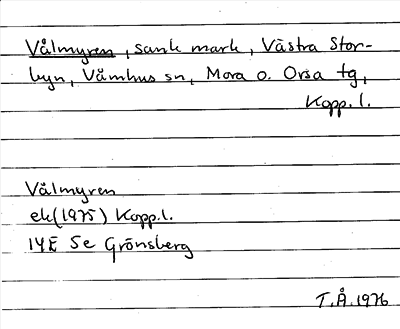 Vålmyren, sank mark, Västra Stor-
byn, Våmhus sn, Mora o. Orsa tg,
Kopp.l.
Vålmyren
ek(1975) Kopp.l.
14E Se Grönsberg
T.Å.1976